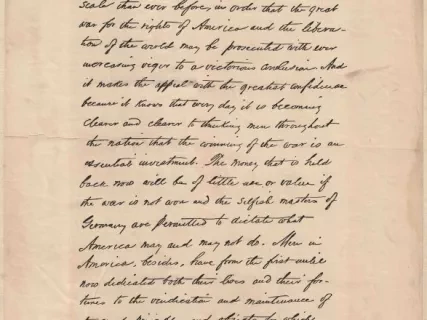 scale than ever before, in order that the great
war for the rights of America and the libera-
tion of the world may be prosecuted with ever
increasing vigor to a victorious conclusion. And
it makes the appeal with the greatest confidence
because it knows that every day it is becoming
clearer and clearer to thinking men throughout
the nation that the winning of the war is an
essential investment. The money that is held
back now will be of little use or value if
the war is not won and the selfish masters of
Germany are permitted to dictate what
America may and may not do. Men in
America, besides, have from the first until
now dedicated both their lives and their for-
tunes to the vindication and maintenance of